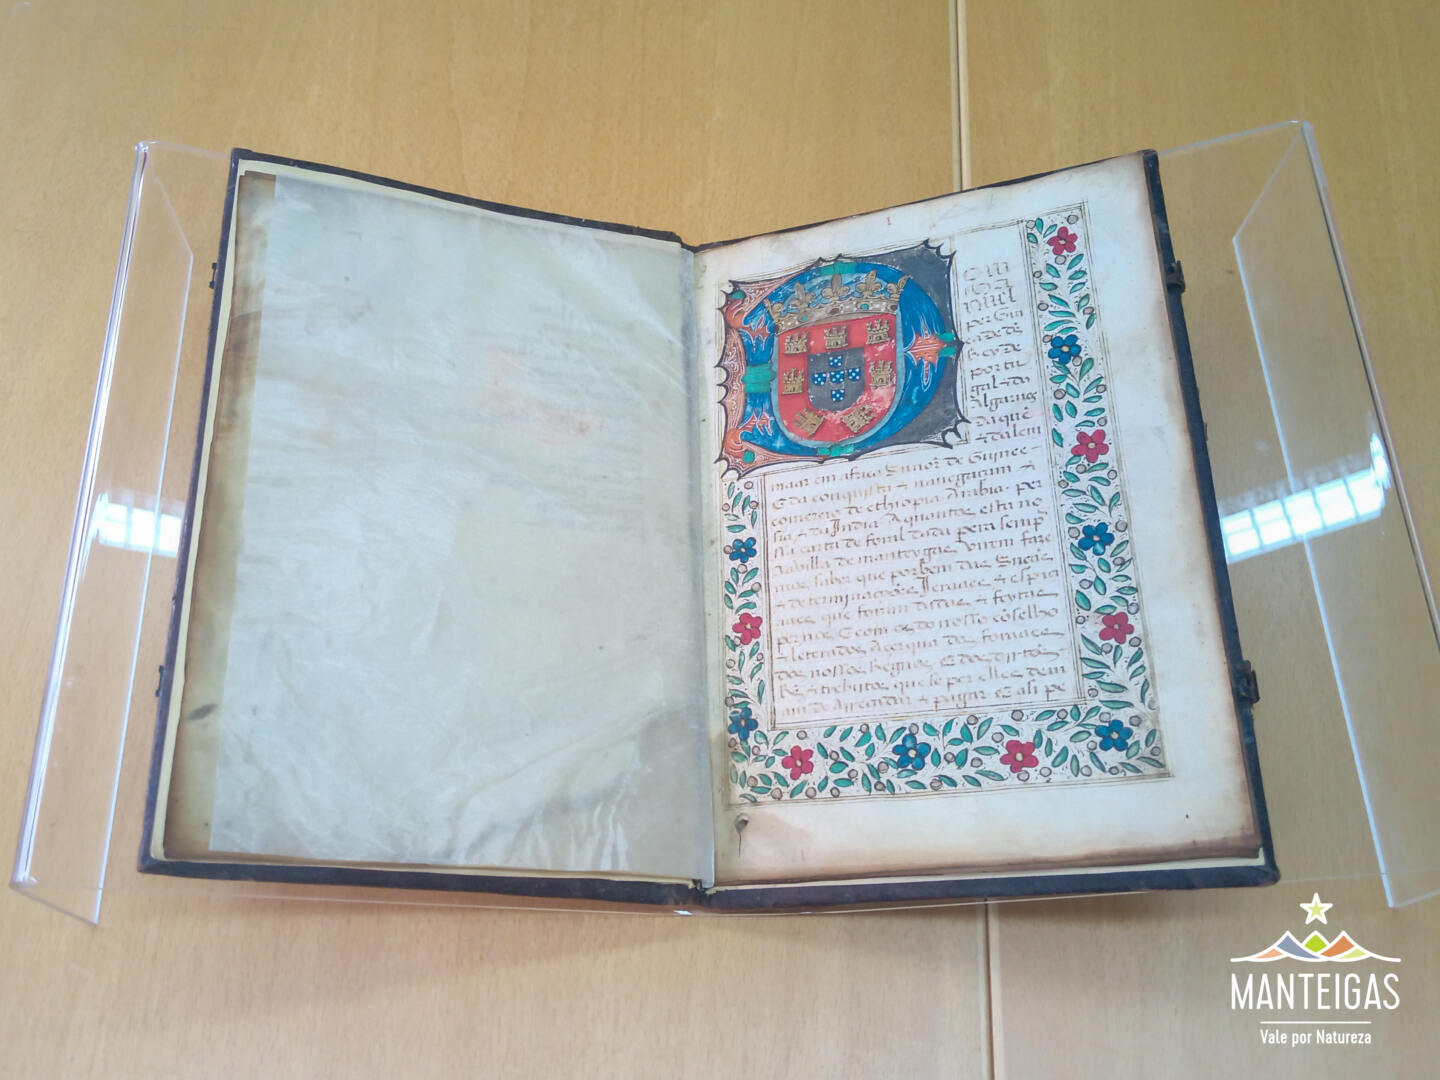 I
Dom
Ma
nuel
per Gra
ça de ds
Rey de
portu
gal & do
Algarues
daquē
& dalem
maar em africa Snnor de Guinee
E da conquista & nauegacam &
comerçio de ethiopia Arabia per
sia & da India A quantos esta no
ssa carta de foral dada pera semp
aa villa de manteygas virem faze
mos saber que per bem das
& determinações Jeraaes & espiçi
aaes que foram dadas & feytas
per nos E com os do nosso cōselho
& leterados Açerqua dos foraaes
dos nossos Reynos E dos dirtos
Rs & trebutos que se per elles deui
am de Arrecadar & pagar E asi pe
MANTEIGAS
Vale por Natureza